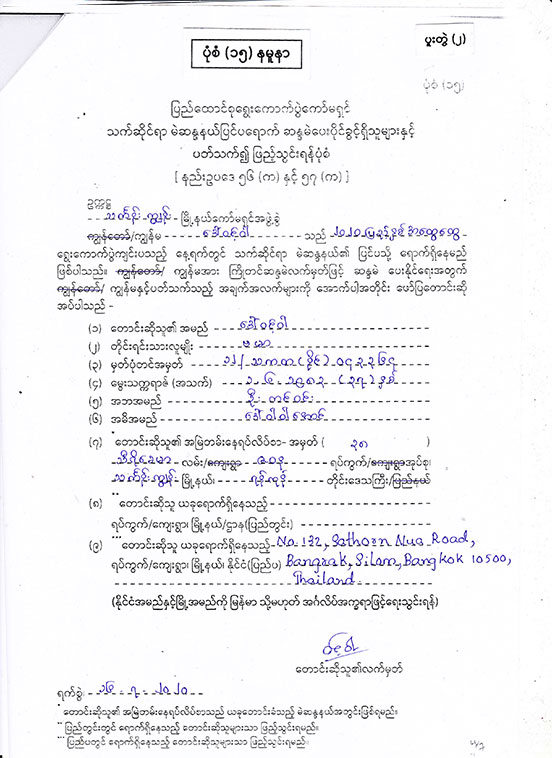 ပုံစံ (၁၅) နမူနာ
ပူးတွဲ (၂)
ပုံစံ (၁၅)
ပြည်ထောင်စုရွေးကောက်ပွဲကော်မရှင်
သက်ဆိုင်ရာ မဲဆန္ဒနယ်ပြင်ပရောက် ဆန္ဒမဲပေးပိုင်ခွင့်ရှိသူများနှင့်
ပတ်သက်၍ ဖြည့်သွင်းရန်ပုံစံ
[ နည်းဥပဒေ ၅၆ (က) နှင့် ၅၇ (က) ]
ဥက္ကဋ္ဌ
သင်္ဃန်းကျွန်း မြို့နယ်ကော်မရှင်အဖွဲ့ခွဲ
ကျွန်တော်/ကျွန်မ ဒေါ်ဝင့်ဝါ သည် ၂၀၂၀ ပြည့်နှစ် အထွေထွေ
ရွေးကောက်ပွဲကျင်းပသည့် နေ့ရက်တွင် သက်ဆိုင်ရာ မဲဆန္ဒနယ်၏ ပြင်ပသို့ ရောက်ရှိနေမည်
ဖြစ်ပါသည်။ ကျွန်တော်/ ကျွန်မအား ကြိုတင်ဆန္ဒမဲလက်မှတ်ဖြင့် ဆန္ဒမဲ ပေးနိုင်ရေးအတွက်
ကျွန်တော်/ ကျွန်မနှင့်ပတ်သက်သည့် အချက်အလက်များကို အောက်ပါအတိုင်း ဖော်ပြတောင်းဆို
အပ်ပါသည် -
(၁) တောင်းဆိုသူ၏ အမည် ဒေါ်ဝင့်ဝါ
(၂) တိုင်းရင်းသားလူမျိုး ဗမာ
(၃) မှတ်ပုံတင်အမှတ် ၁၂/သဃက(နိုင်)၁၄၃၃၆၄
(၄) မွေးသက္ကရာဇ် (အသက်) ၁-၆-၁၉၈၃ (၃၇)နှစ်
(၅) အဘအမည် ဦးတင်ဝင်း
(၆) အမိအမည် ဒေါ်ဝါဝါအောင်
(၇) *တောင်းဆိုသူ၏ အမြဲတမ်းနေရပ်လိပ်စာ- အမှတ် ( ၃၈ )
သီရိခေမာ လမ်း/ကျေးရွာ ရပ်ကွက်/ကျေးရွာအုပ်စု၊
သင်္ဃန်းကျွန်း မြို့နယ်၊ ရန်ကုန် တိုင်းဒေသကြီး/ပြည်နယ်
(၈) **တောင်းဆိုသူ ယခုရောက်ရှိနေသည့်
ရပ်ကွက်/ကျေးရွာ၊ မြို့နယ်/ဌာန(ပြည်တွင်း)
(၉) ***တောင်းဆိုသူ ယခုရောက်ရှိနေသည့်- No. 132, Sathorn Nua Road,
ရပ်ကွက်/ကျေးရွာ၊ မြို့နယ်၊ နိုင်ငံ(ပြည်ပ) Bangrak, Silom, Bangkok 10500,
Thailand
(နိုင်ငံအမည်နှင့်မြို့အမည်ကို မြန်မာ သို့မဟုတ် အင်္ဂလိပ်အက္ခရာဖြင့်ရေးသွင်းရန်)
ဝင့်ဝါ
တောင်းဆိုသူ၏လက်မှတ်
ရက်စွဲ၊ ၁၆-၇-၂၀၂၀
*တောင်းဆိုသူ၏ အမြဲတမ်းနေရပ်လိပ်စာသည် ယခုတောင်းခံသည့် မဲဆန္ဒနယ်အတွင်းဖြစ်ရမည်။
**ပြည်တွင်းတွင် ရောက်ရှိနေသည့် တောင်းဆိုသူများသာ ဖြည့်သွင်းရမည်။
***ပြည်ပတွင် ရောက်ရှိနေသည့် တောင်းဆိုသူများသာ ဖြည့်သွင်းရမည်။